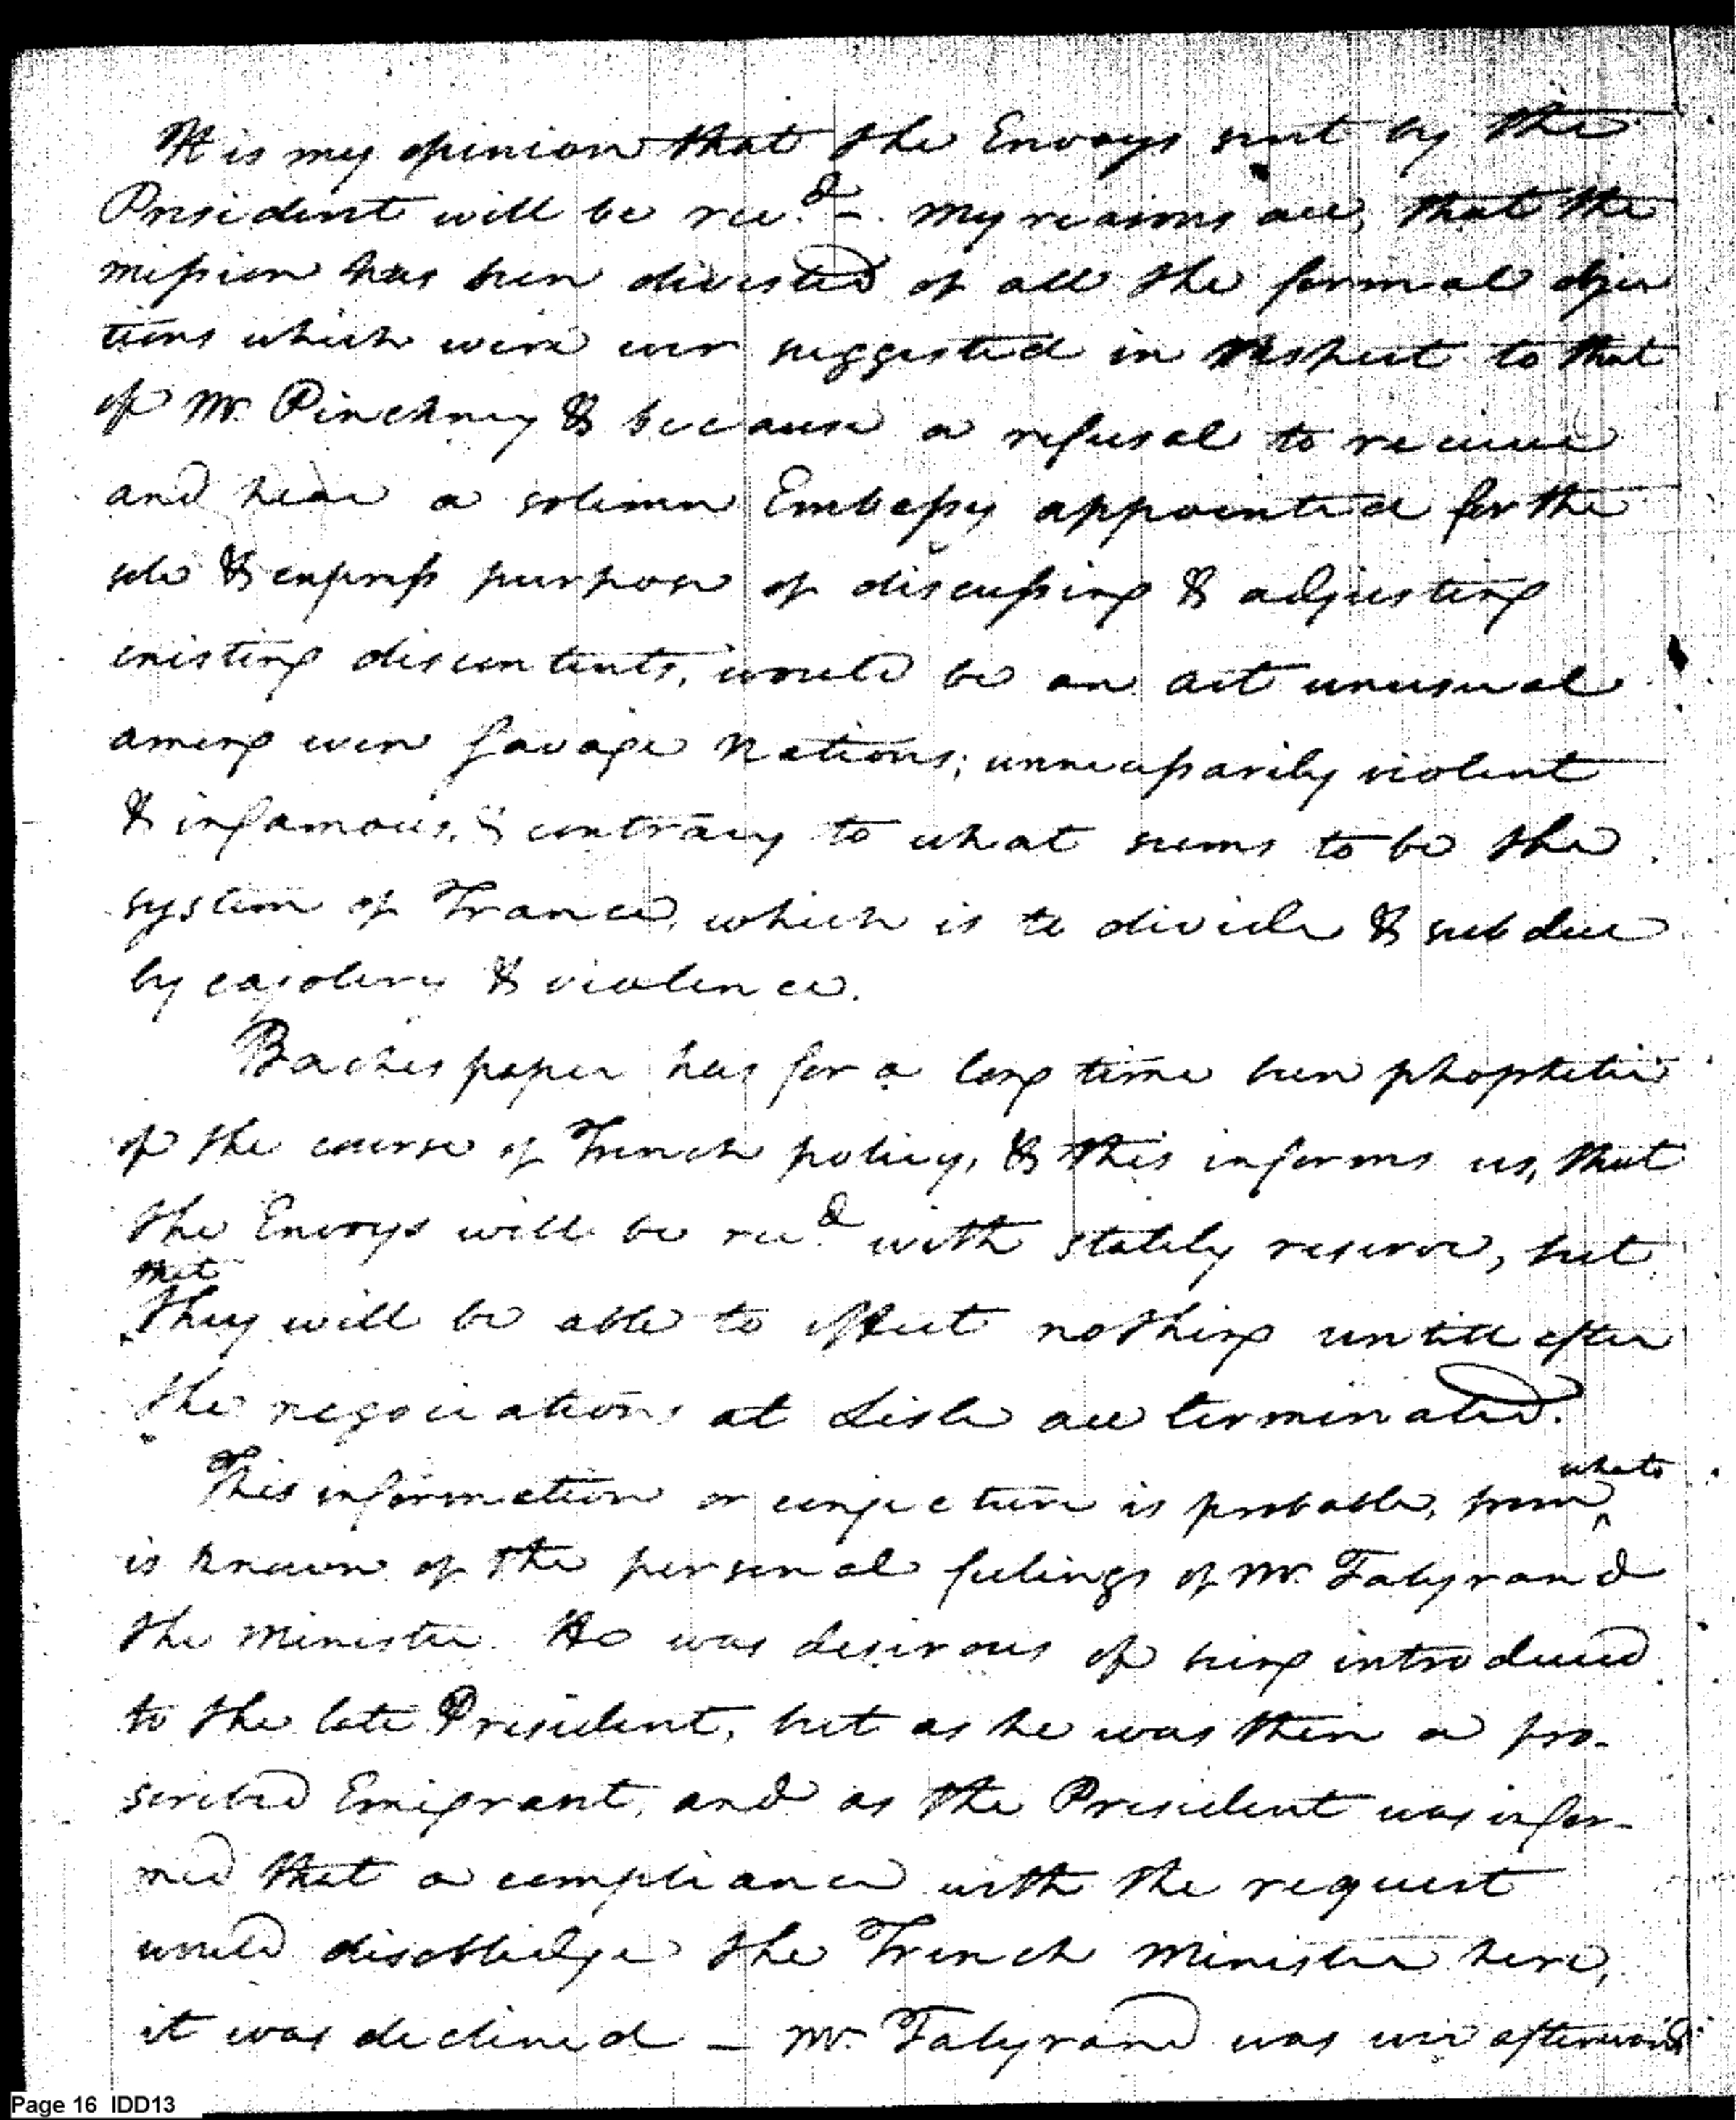 It is my opinion that the Envoys sent by the
President will be recd. My reasons are, that the
mission has been divested of all the formal objec
tions which were ever suggested in respect to that
of Mr. Pinckney & because a refusal to receive
and hear a solemn Embassy appointed for the
sole & express purpose of discussing & adjusting
existing discontents, would be an act unusual
among even savage Nations; unnecessarily violent
& infamous, & contrary to what seems to be the
system of France, which is to divide & subdue
by cajolery & violence.
Baches paper has for a long time been phophetic
of the course of French policy, & this informs us, that
the Envoys will be recd. with stately reserve, but
that
they will be able to effect nothing untill after
the negociations at Lisle are terminated.
what
This information or conjecture is probable, from
is known of the personal feelings of Mr. Talyrand
the Minister. He was desirous of being introduced
to the late President, but as he was then a pro-
scribed Emigrant, and as the President was infor-
med that a compliance with the request
would disobledge the French Minister here,
it was declined — Mr. Talyrand was ever afterwards
Page 16 IDD13